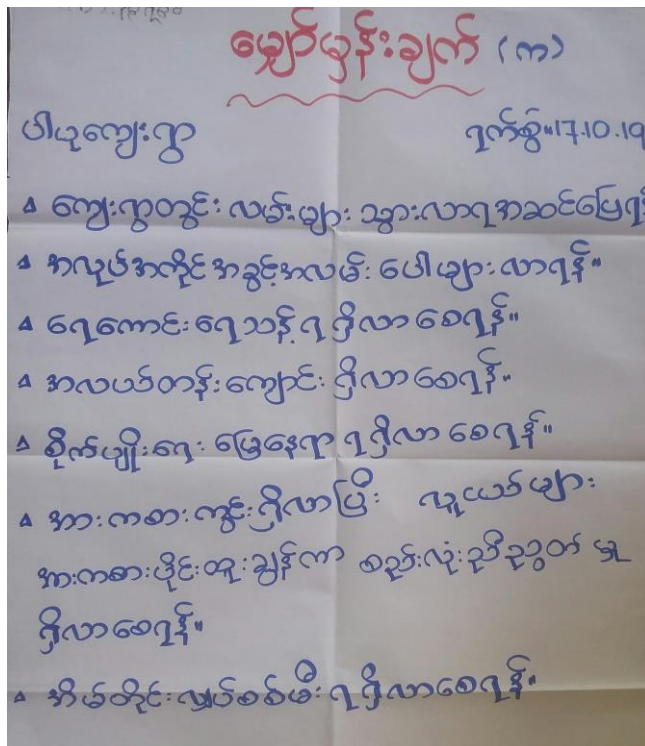 မျှော်မှန်းချက် (က)
ပါယုကျေးရွာ ရက်စွဲ။17.10.19
▵ ကျေးရွာတွင်း လမ်းများ သွားလာရအဆင်ပြေရန်
▵ အလုပ်အကိုင်အခွင့်အလမ်း ပေါများလာရန်။
▵ ရေကောင်းရေသန့် ရရှိလာစေရန်။
▵ အလယ်တန်းကျောင်း ရှိလာစေရန်။
▵ စိုက်ပျိုးရေး မြေနေရာ ရရှိလာစေရန်။
▵ အားကစားကွင်းရှိလာပြီး လူငယ်များ
အားကစားပိုင်းထူးချွန်ကာ စည်းလုံးညီညွတ်မှု
ရှိလာစေရန်။
▵ အိမ်တိုင်းလျှပ်စစ်မီး ရရှိလာစေရန်။